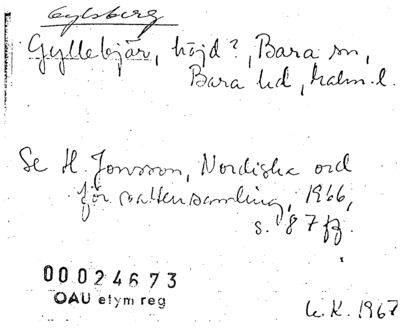 Gylsberg
Gyllebjär, höjd?, Bara sn,
Bara hd, Malm. l.
Se H. Jonsson, Nordiska ord
för vattensamling, 1966,
s. 87 ff.
00024673
OAU etym reg
U.K. 1967